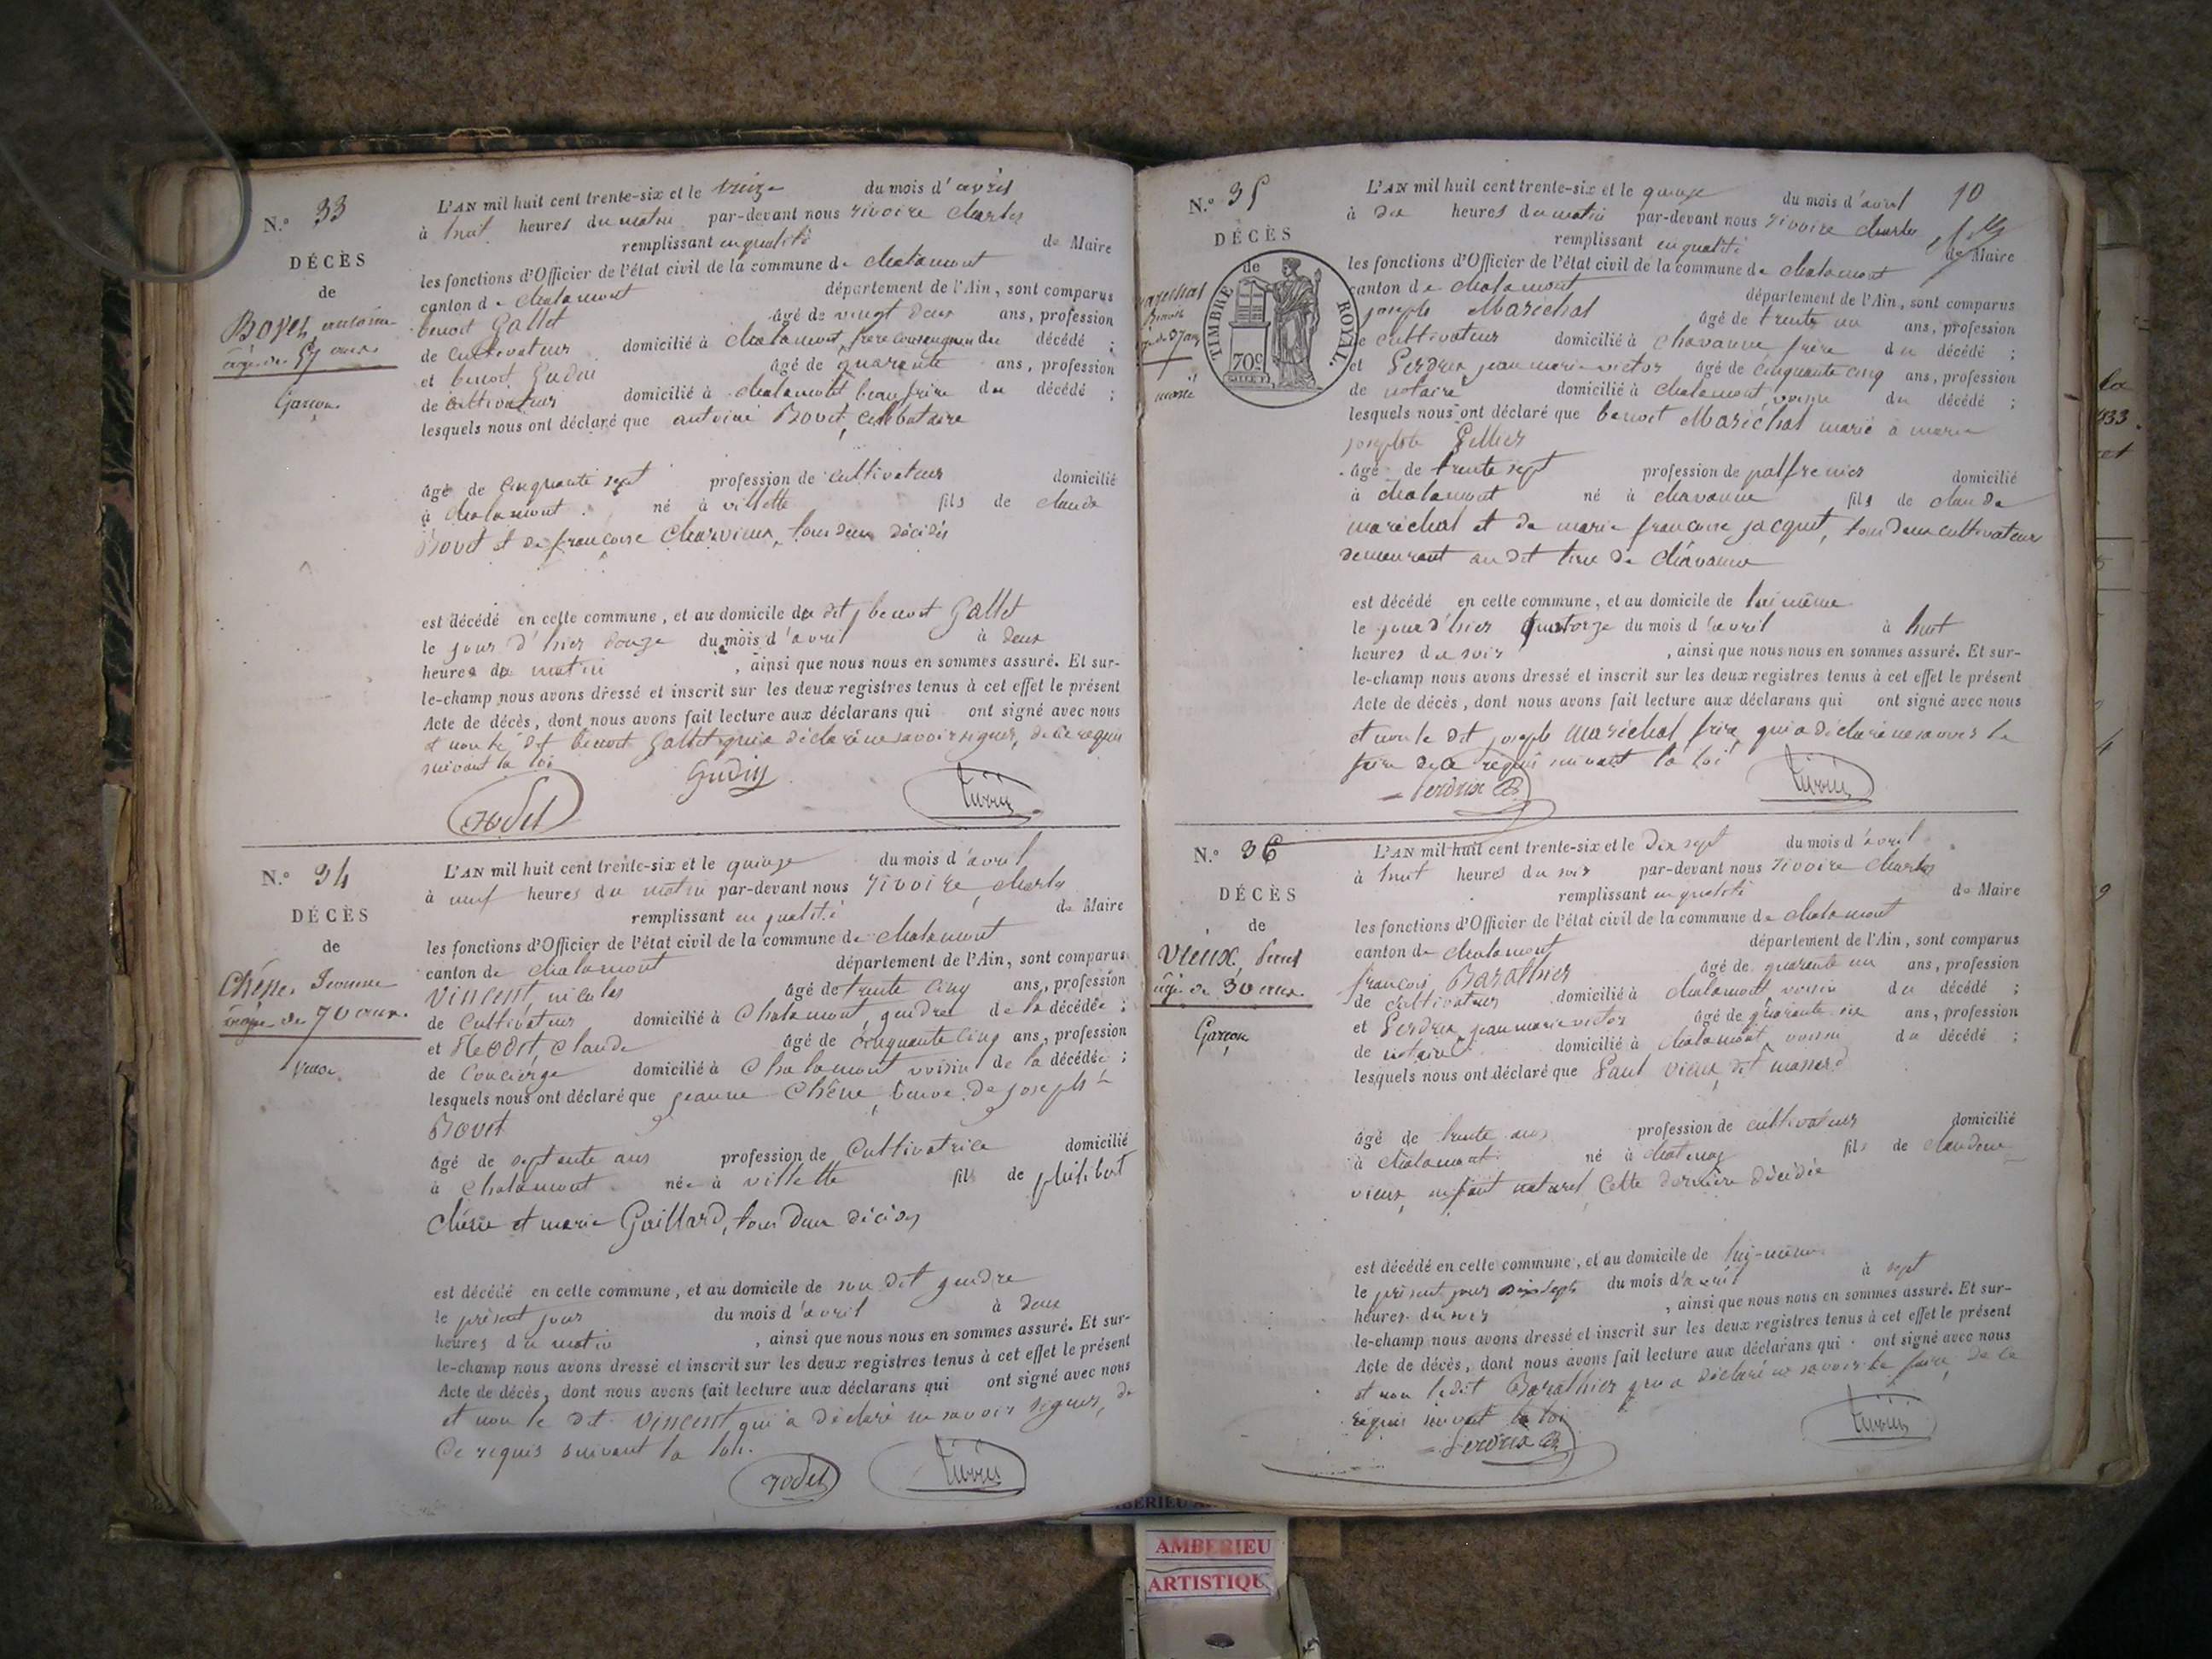 N.° 33
DÉCÈS
de
Bovet antoine
âgé de 57 ans
Garçon
L'AN mil huit cent trente-six et le treize du mois d'avril
à huit heures du matin par-devant nous rivoire charles
remplissant en qualité de Maire
les fonctions d'Officier de l'état civil de la commune de chalamont
canton de chalamont département de l'Ain, sont comparus
benoit Gallet âgé de vingt deux ans, profession
de cultivateur domicilié à chalamont, frère du décédé ;
et benoit Gudin âgé de quarante ans, profession
de cultivateur domicilié à chalamont beaufrère du décédé ;
lesquels nous ont déclaré que antoine Bovet, celibataire
âgé de cinquante sept profession de cultivateur domicilié
à chalamont né à villette fils de claude
Bovet et de françoise Charvieux, tous deux décédés
est décédé en cette commune, et au domicile du dit benoit Gallet
le jour d'hier douze du mois d'avril à deux
heures du matin, ainsi que nous nous en sommes assuré. Et sur-
le-champ nous avons dressé et inscrit sur les deux registres tenus à cet effet le présent
Acte de décès, dont nous avons fait lecture aux déclarans qui ont signé avec nous
et non le dit benoit Gallet qui a déclaré ne savoir signer, de ce requis
suivant la loi
Gudin
N.° 34
DÉCÈS
de
Chêne Jeanne
âgée de 70 ans.
Veuve
L'AN mil huit cent trente-six et le quinze du mois d'avril
à neuf heures du matin par-devant nous rivoire, charles
remplissant en qualité de Maire
les fonctions d'Officier de l'état civil de la commune de chalamont
canton de chalamont département de l'Ain, sont comparus
Vincent, nicolas âgé de trente cinq ans, profession
de Cultivateur domicilié à Chalamont, gendre de la décédée ;
et claude âgé de cinquante cinq ans, profession
de Concierge domicilié à Chalamont voisin de la décédée ;
lesquels nous ont déclaré que jeanne Chêne, veuve de joseph
Bovet
âgé de septante ans profession de Cultivatrice domicilié
à Chalamont née à villette fils de philibert
Chêne et marie Gaillard, tous deux décédés
est décédé en cette commune, et au domicile de son dit gendre
le présent jour du mois d'avril à deux
heures du matin, ainsi que nous nous en sommes assuré. Et sur-
le-champ nous avons dressé et inscrit sur les deux registres tenus à cet effet le présent
Acte de décès, dont nous avons fait lecture aux déclarans qui ont signé avec nous
et non le dit Vincent qui a déclaré ne savoir signer, de
Ce requis suivant la loi.
N.° 35
DÉCÈS
de
marechal
Benoit
âgé de 37 ans
marié
TIMBRE ROYAL
70c
10
L'AN mil huit cent trente-six et le quinze du mois d'avril
à dix heures du matin par-devant nous rivoire charles
remplissant en qualité de Maire
les fonctions d'Officier de l'état civil de la commune de chalamont
canton de chalamont département de l'Ain, sont comparus
joseph Maréchal âgé de trente un ans, profession
de cultivateur domicilié à Chavanne frère du décédé ;
et Perdrix jean marie victor âgé de cinquante cinq ans, profession
de notaire domicilié à chalamont, voisin du décédé ;
lesquels nous ont déclaré que benoit Maréchal marié à marie
josephte
âgé de trente sept profession de palfrenier domicilié
à chalamont né à chavanne fils de claude
maréchal et de marie françoise jacquet, tous deux cultivateurs
demeurant au dit lieu de chavanne
est décédé en cette commune, et au domicile de lui même
le jour d'hier quatorze du mois d'avril à huit
heures du soir, ainsi que nous nous en sommes assuré. Et sur-
le-champ nous avons dressé et inscrit sur les deux registres tenus à cet effet le présent
Acte de décès, dont nous avons fait lecture aux déclarans qui ont signé avec nous
et non le dit joseph Maréchal frère, qui a déclaré ne savoir le
faire de ce requis suivant la loi
Perdrix
N.° 36
DÉCÈS
de
Vieux, Paul
âgé de 30 ans.
Garçon
L'AN mil huit cent trente-six et le dix sept du mois d'avril
à huit heures du soir par-devant nous rivoire Charles
remplissant en qualité de Maire
les fonctions d'Officier de l'état civil de la commune de chalamont
canton de chalamont département de l'Ain, sont comparus
françois Barathier âgé de quarante un ans, profession
de cultivateur domicilié à chalamont voisin du décédé ;
et Perdrix jean marie victor âgé de quarante six ans, profession
de notaire domicilié à chalamont voisin du décédé ;
lesquels nous ont déclaré que Paul vieux dit
âgé de trente ans profession de cultivateur domicilié
à chalamont né à chatenay fils de claudine
vieux, enfant naturel, cette dernière décédée
est décédé en cette commune, et au domicile de lui-même
le présent jour dix sept du mois d'avril à sept
heures du soir, ainsi que nous nous en sommes assuré. Et sur-
le-champ nous avons dressé et inscrit sur les deux registres tenus à cet effet le présent
Acte de décès, dont nous avons fait lecture aux déclarans qui ont signé avec nous
et non le dit Barathier qui a déclaré ne savoir le faire, de ce
requis suivant la loi
Perdrix
AMBERIEU
ARTISTIQUE